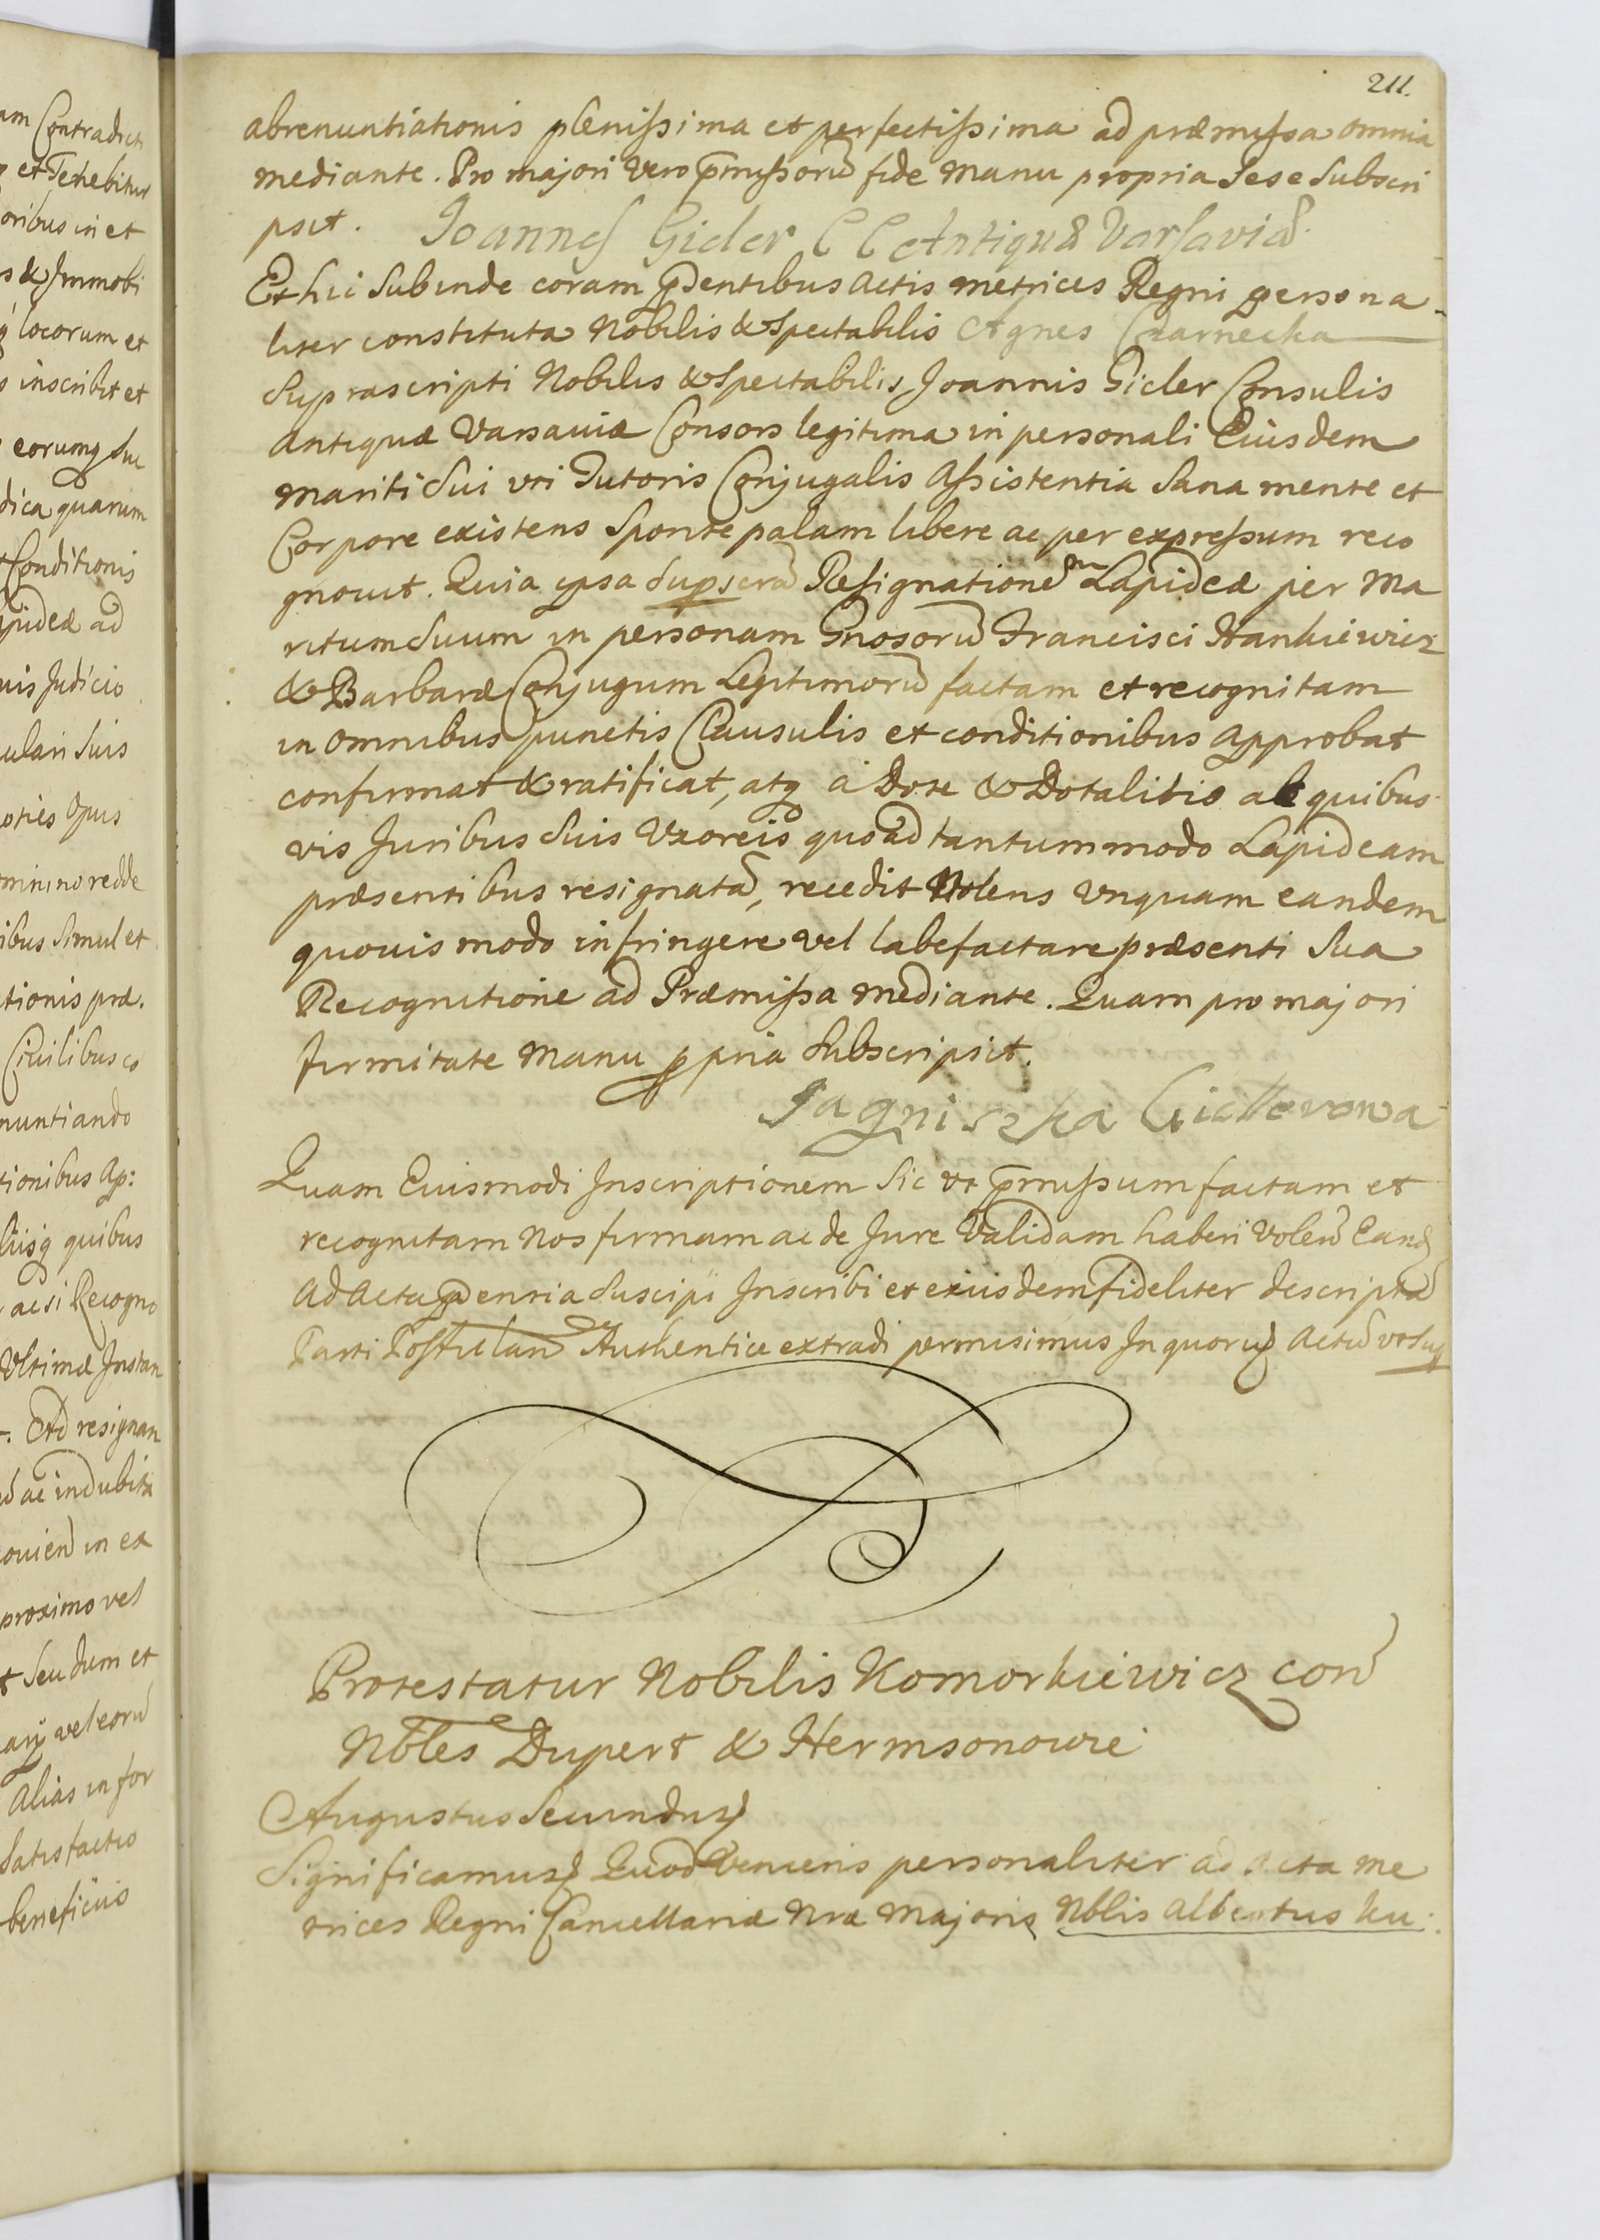 211.
abrenuntiationis plenissima et perfectissima ad præmissa omnia
mediante. Pro majori vero p̄missorū fide manu propria sese subscri
psit. Joannes Gieler C C Antiquæ Varsaviæ.
Et hic subinde coram p̄dentibus Actis metrices Regni persona
liter constituta Nobilis & Spectabilis Agnes Czarnecka
suprascripti Nobilis & Spectabilis Joannis Gieler Consulis
Antiquæ Varsaviæ Consors legitima in personali Eiusdem
mariti sui uti Tutoris Conjugalis Assistentia sana mente et
Corpore existens sponte palam libere ac per expressum reco
gnovit. Quia ipsa supscrā Resignationem Lapideæ per Ma
ritum suum in personam Gnosorū Francisci Hankiewicz
& Barbaræ Conjugum Legitimorū factam et recognitam
in omnibus punctis Clausulis et conditionibus approbat
confirmat & ratificat, atq à Dote & Dotalitio ab quibus
vis Juribus suis Uxoreis quoad tantummodo Lapideam
præsentibus resignatā, recedit Nolens unquam eandem
quovis modo infringere vel labefactare præsenti sua
Recognitione ad Præmissa mediante. Quam pro majori
firmitate manu ppria subscripsit.
Jagniszka Giellerowa
Quam Eiusmodi Inscriptionem sic ut p̄missum factam et
recognitam nos firmam ac de Jure Validam haberi volen Eand
ad Acta p̄dentia suscipi Inscribi et eiusdem fideliter descriptā
Parti Postulan Authentice extradi permisimus In quorū Actū ut sup
Protestatur Nobilis Komorkiewicz con
Nbles Dupert & Hermsonowie
Augustus Secundus
Significamus Quod Veniens personaliter ad Acta me
trices Regni Cancellariæ Nræ Majoris Nblis Albertus Ku
am Contradicti
et Tenebitur
oribus in et
s & Immobi
locorum et
inscribit et
eorumq suc
dica quarum
Conditionis
apideæ ad
uis Judicio
ulari suis
oties opus
omnino redde
ibus simul et
tionis præ.
Civilibus co
nuntiando
tionibus Ap:
quibus
ac si Recogno
Ultimæ Instan
. Ad resignan
ac indubita
in ex
proximo vel
seu dum et
vel eorū
alias in for
satisfactio
beneficiis